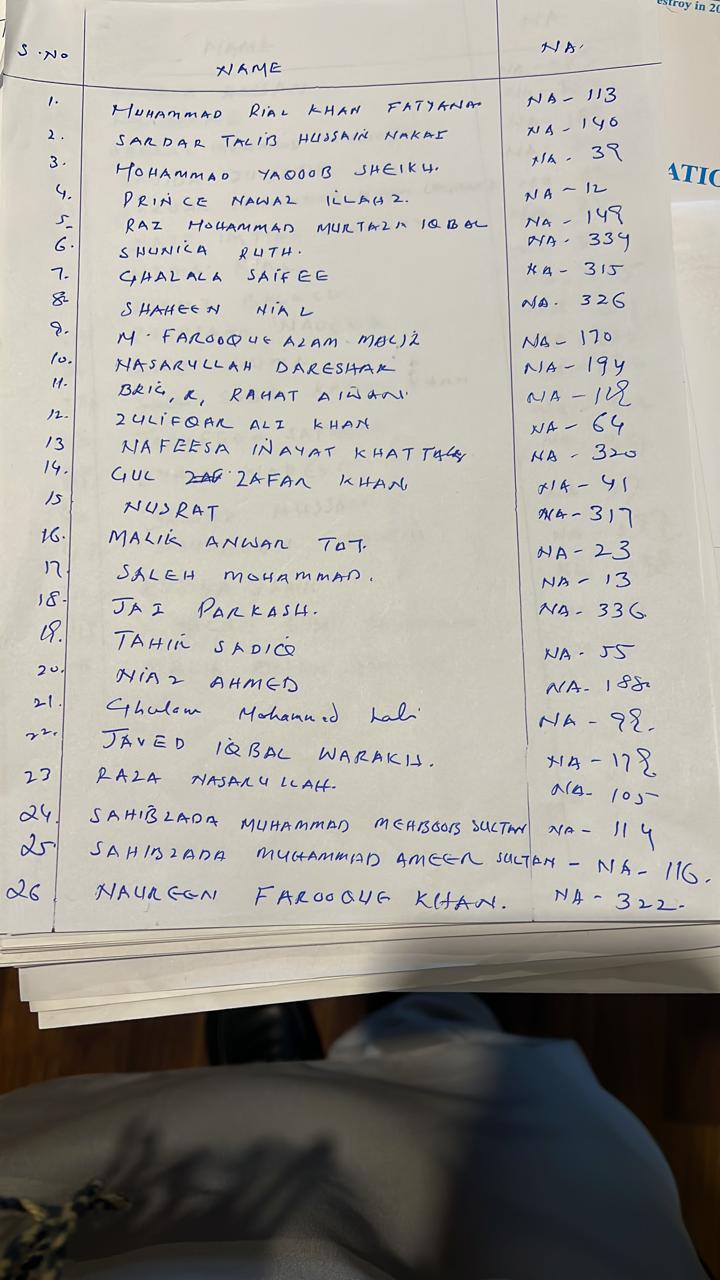 estroy in 20
ATIO
S.NO NAME NA.
1. MUHAMMAD RIAZ KHAN FATYANA NA - 113
2. SARDAR TALIB HUSSAIN NAKAI NA - 140
3. MOHAMMAD YAQOOB SHEIKH. NA - 39
4. PRINCE NAWAZ ILLAHI. NA - 12
5. RAZ MOHAMMAD MURTAZA IQBAL NA - 149
6. SHUNILA RUTH. NA - 334
7. GHAZALA SAIFEE NA - 315
8. SHAHEEN NIAZ NA. 326
9. M. FAROOQUE AZAM MALIK NA - 170
10. NASARULLAH DARESHAK NA - 194
11. BRIG, R, RAHAT NA - 119
12. ZULIFQAR ALI KHAN NA - 64
13 NAFEESA INAYAT KHATTAK NA - 320
14. GUL ZAFAR KHAN NA - 41
15 NUSRAT NA - 317
16. MALIK ANWAR TAJ. NA - 23
17. SALEH MOHAMMAD. NA - 13
18. JAI PARKASH. NA - 336
19. TAHIR SADIQ NA - 55
20. NIAZ AHMED NA - 188
21. Ghulam Mohammed Lali NA - 99.
22. JAVED IQBAL WARAICH. NA - 179
23 RAZA NASARULLAH. NA - 105
24. SAHIBZADA MUHAMMAD MEHBOOB SULTAN NA - 114
25 SAHIBZADA MUHAMMAD AMEER SULTAN - NA - 116.
26 NAUREEN FAROOQUE KHAN. NA - 322.